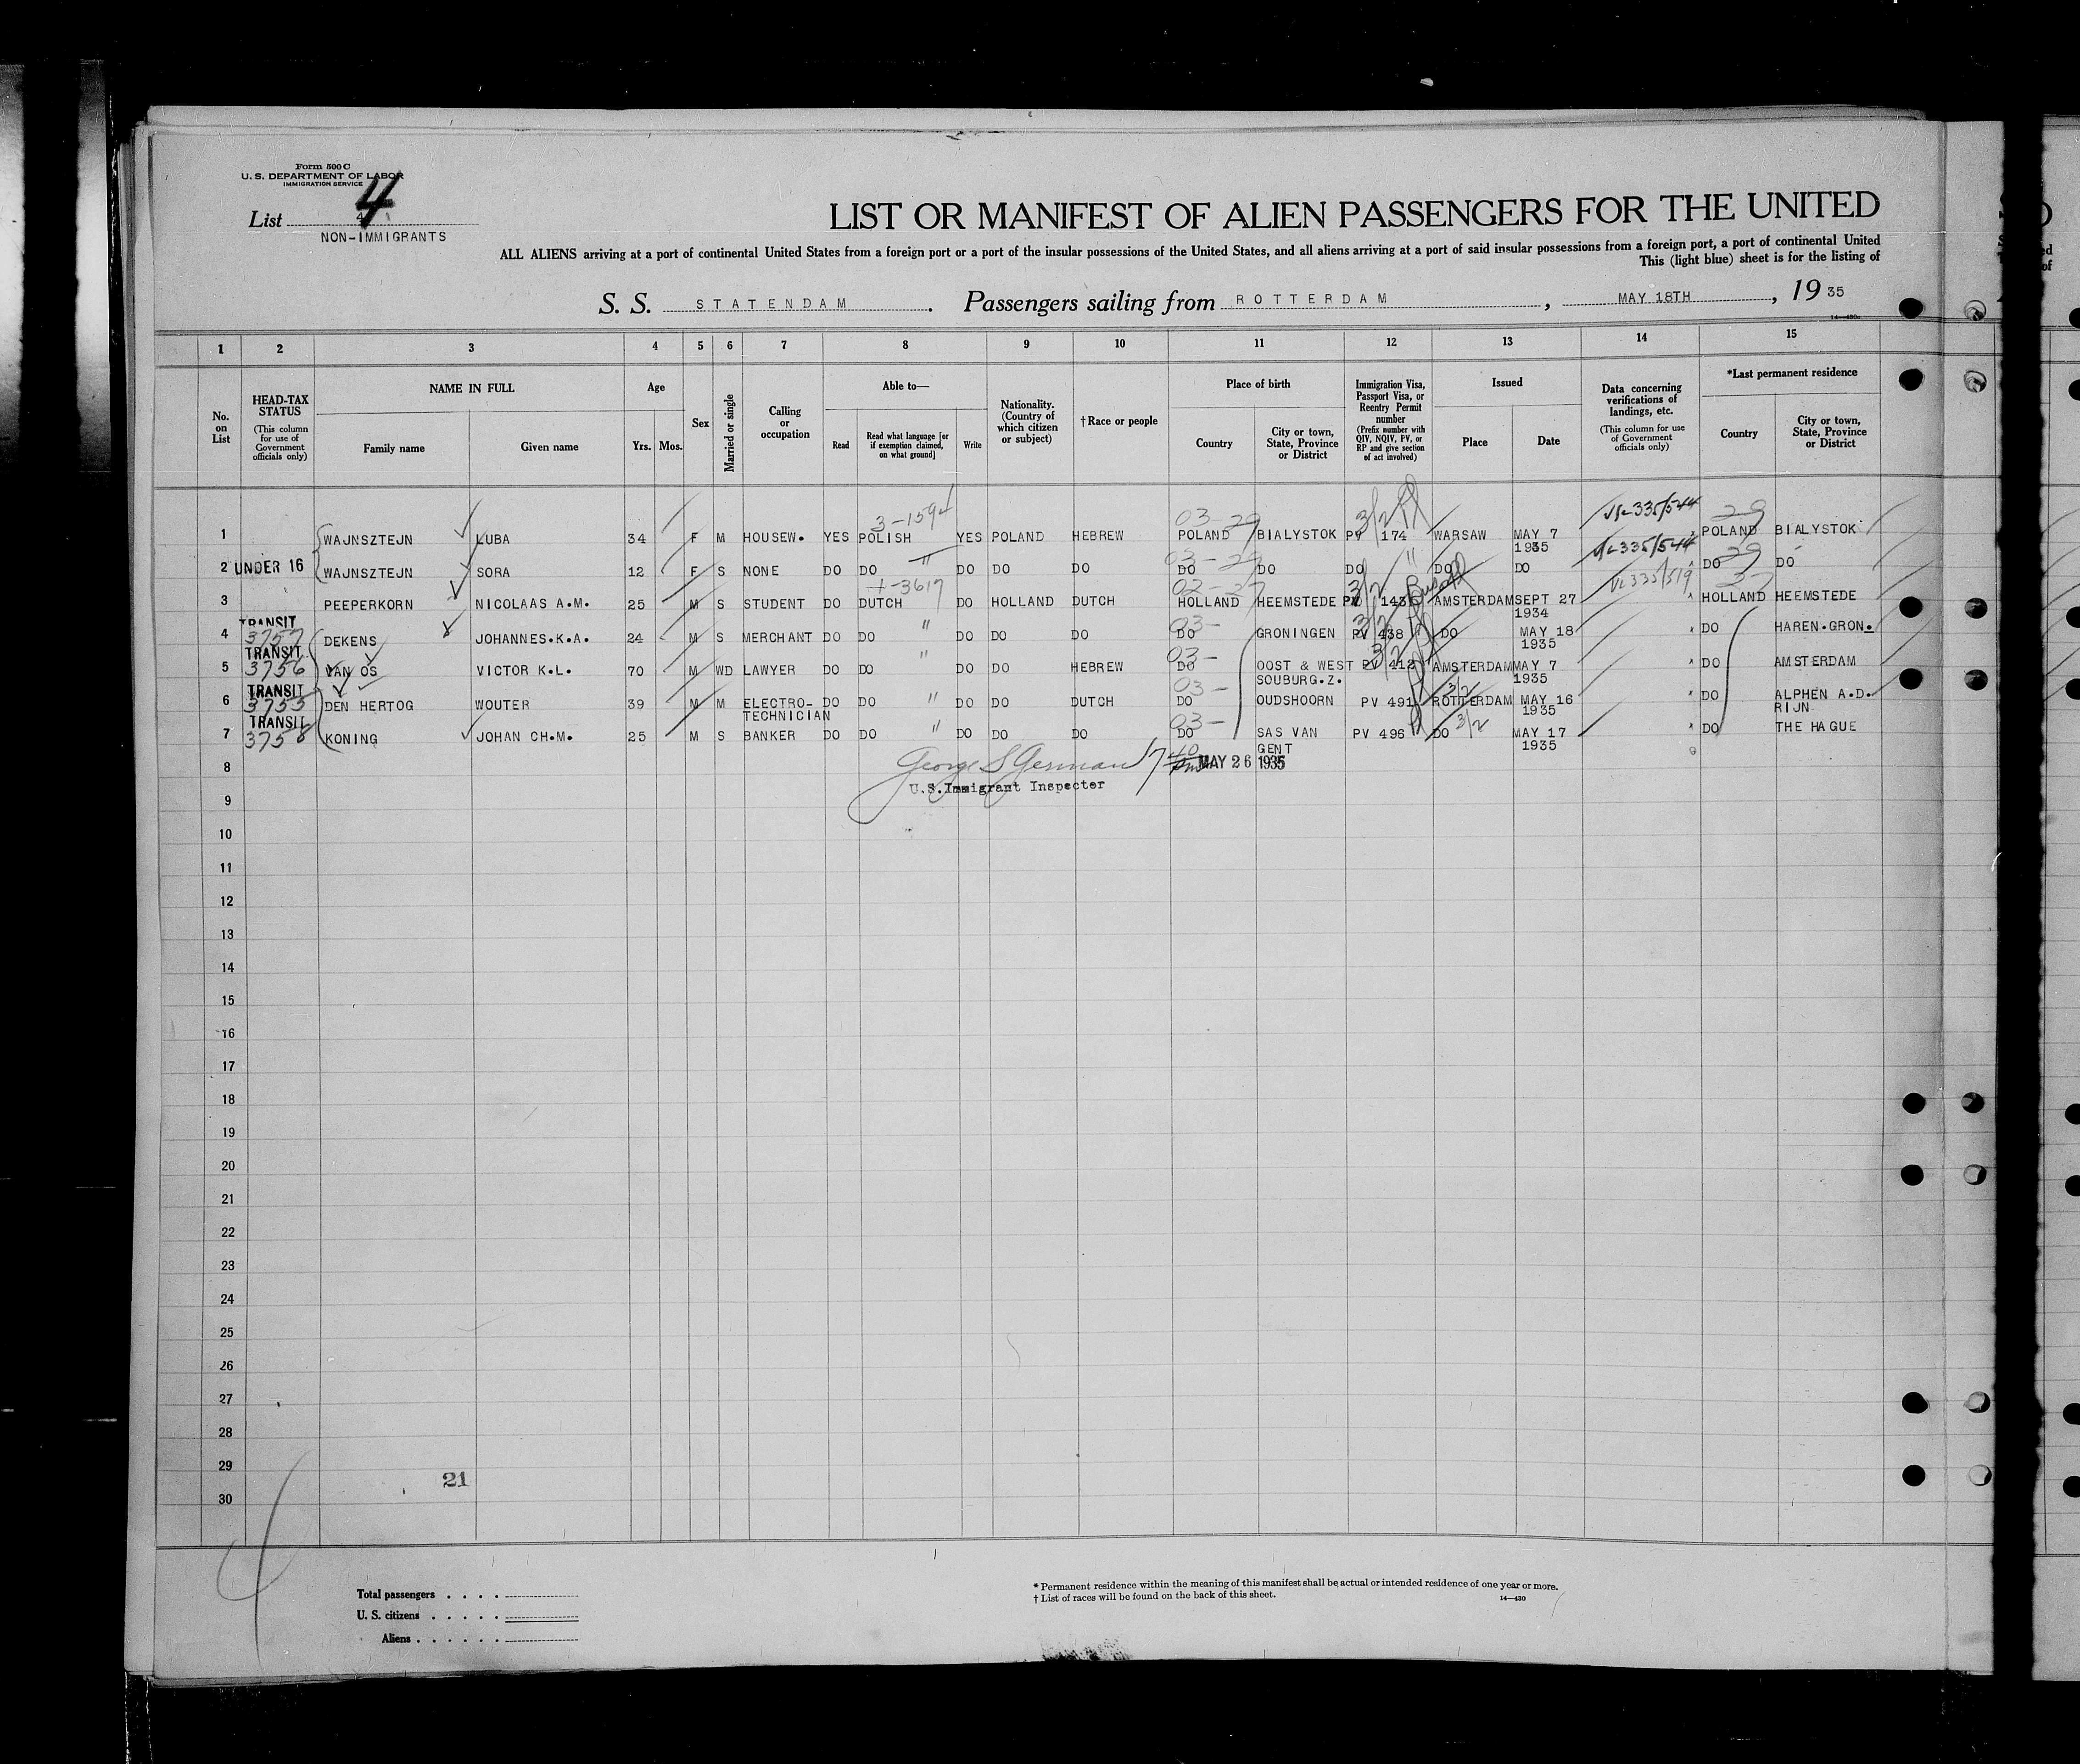 Form 500 C
U. S. DEPARTMENT OF LABOR
IMMIGRATION SERVICE
List 4
NON-IMMIGRANTS
LIST OR MANIFEST OF ALIEN PASSENGERS FOR THE UNITED
ALL ALIENS arriving at a port of continental United States from a foreign port or a port of the insular possessions of the United States, and all aliens arriving at a port of said insular possessions from a foreign port, a port of continental United
This (light blue) sheet is for the listing of
S. S. STATENDAM. Passengers sailing from ROTTERDAM, MAY 18TH, 19 35
1 2 3 4 5 6 7 8 9 10 11 12 13 14 15
No. on List
HEAD-TAX STATUS (This column for use of Government officials only)
NAME IN FULL
Family name Given name
Age
Yrs. Mos.
Sex
Married or single
Calling or occupation
Able to—
Read
Read what language [or if exemption claimed, on what ground]
Write
Nationality. (Country of which citizen or subject)
†Race or people
Place of birth
Country
City or town, State, Province or District
Immigration Visa, Passport Visa, or Reentry Permit number (Prefix number with QIV, NQIV, PV, or RP and give section of act involved)
Issued
Place Date
Data concerning verifications of landings, etc. (This column for use of Government officials only)
*Last permanent residence
Country
City or town, State, Province or District
3-1594 03-29 3/2 335/544 29
1 WAJNSZTEJN LUBA 34 F M HOUSEW. YES POLISH YES POLAND HEBREW POLAND BIALYSTOK PV 174 WARSAW MAY 7 1935 POLAND BIALYSTOK
" 03-29 " 335/544 29
2 UNDER 16 WAJNSZTEJN SORA 12 F S NONE DO DO DO DO DO DO DO DO DO DO DO DO
3617 335/519
3 PEEPERKORN NICOLAAS A.M. 25 M S STUDENT DO DUTCH DO HOLLAND DUTCH HOLLAND HEEMSTEDE PV 143 AMSTERDAM SEPT 27 1934 HOLLAND HEEMSTEDE
TRANSIT
4 3757 DEKENS JOHANNES.K.A. 24 M S MERCHANT DO DO " DO DO DO 03- DO GRONINGEN PV 438 DO MAY 18 1935 DO HAREN.GRON.
TRANSIT
5 3756 VAN OS VICTOR K.L. 70 M WD LAWYER DO DO " DO DO HEBREW 03- DO OOST & WEST SOUBURG.Z. PV 412 AMSTERDAM MAY 7 1935 DO AMSTERDAM
TRANSIT
6 3755 DEN HERTOG WOUTER 39 M M ELECTRO-TECHNICIAN DO DO " DO DO DUTCH 03- DO OUDSHOORN PV 491 ROTTERDAM 3/2 MAY 16 1935 DO ALPHEN A.D. RIJN
TRANSIT
7 3758 KONING JOHAN CH.M. 25 M S BANKER DO DO " DO DO DO 03- DO SAS VAN GENT PV 496 DO 3/2 MAY 17 1935 DO THE HAGUE
8 George S German MAY 26 1935
U.S. Immigrant Inspector
9
10
11
12
13
14
15
16
17
18
19
20
21
22
23
24
25
26
27
28
29 21
30
Total passengers . . . .
U. S. citizens . . . . .
Aliens . . . . . .
* Permanent residence within the meaning of this manifest shall be actual or intended residence of one year or more.
† List of races will be found on the back of this sheet.
14—430